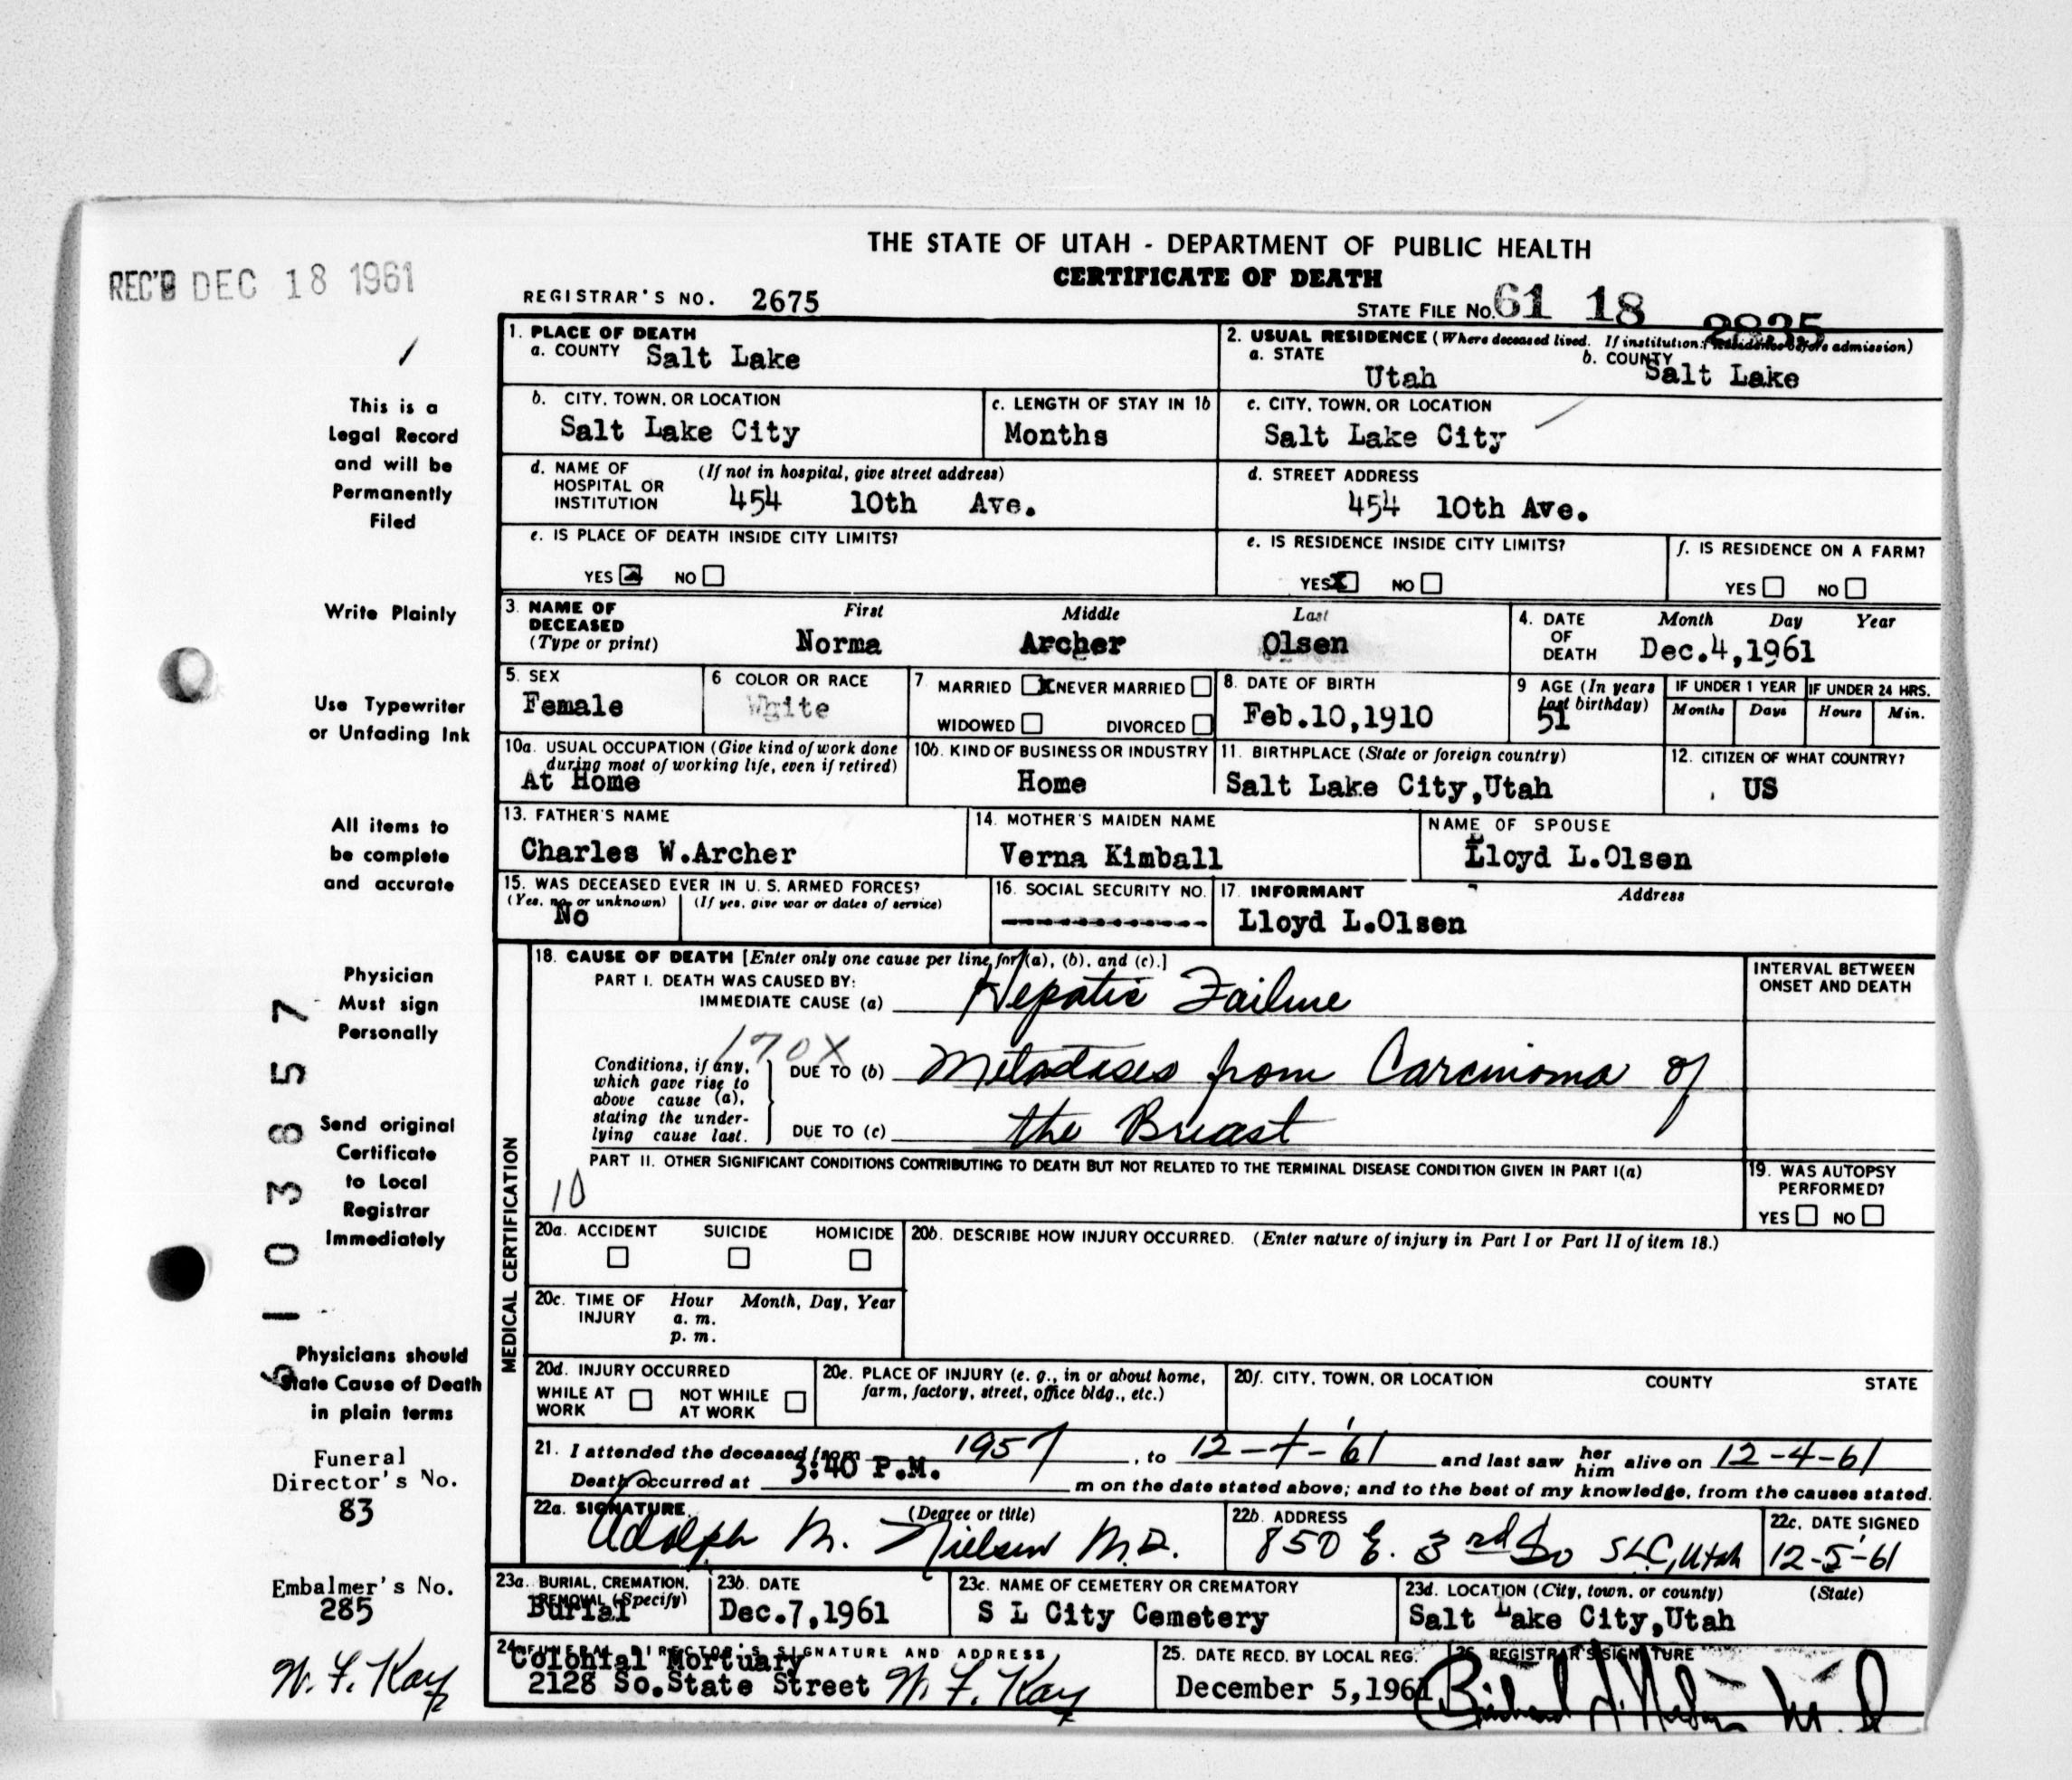 THE STATE OF UTAH - DEPARTMENT OF PUBLIC HEALTH
CERTIFICATE OF DEATH
REC'D DEC 18 1961
REGISTRAR'S NO. 2675
STATE FILE NO. 61 18 2835
1. PLACE OF DEATH
a. COUNTY Salt Lake
2. USUAL RESIDENCE (Where deceased lived. If institution: residence before admission)
a. STATE Utah
b. COUNTY Salt Lake
b. CITY, TOWN, OR LOCATION
Salt Lake City
c. LENGTH OF STAY IN 1b
Months
c. CITY, TOWN, OR LOCATION
Salt Lake City
d. NAME OF HOSPITAL OR INSTITUTION (If not in hospital, give street address)
454 10th Ave.
d. STREET ADDRESS
454 10th Ave.
e. IS PLACE OF DEATH INSIDE CITY LIMITS?
YES NO
e. IS RESIDENCE INSIDE CITY LIMITS?
YES X NO
f. IS RESIDENCE ON A FARM?
YES NO
3. NAME OF DECEASED (Type or print)
First Middle Last
Norma Archer Olsen
4. DATE OF DEATH
Month Day Year
Dec.4,1961
5. SEX
Female
6 COLOR OR RACE
White
7 MARRIED X NEVER MARRIED
WIDOWED DIVORCED
8. DATE OF BIRTH
Feb.10,1910
9 AGE (In years last birthday)
51
IF UNDER 1 YEAR
Months Days
IF UNDER 24 HRS.
Hours Min.
10a. USUAL OCCUPATION (Give kind of work done during most of working life, even if retired)
At Home
10b. KIND OF BUSINESS OR INDUSTRY
Home
11. BIRTHPLACE (State or foreign country)
Salt Lake City,Utah
12. CITIZEN OF WHAT COUNTRY?
US
13. FATHER'S NAME
Charles W.Archer
14. MOTHER'S MAIDEN NAME
Verna Kimball
NAME OF SPOUSE
Lloyd L.Olsen
15. WAS DECEASED EVER IN U. S. ARMED FORCES?
(Yes, no, or unknown) (If yes, give war or dates of service)
No
16. SOCIAL SECURITY NO.
17. INFORMANT Address
Lloyd L.Olsen
MEDICAL CERTIFICATION
18. CAUSE OF DEATH [Enter only one cause per line for (a), (b), and (c).]
PART I. DEATH WAS CAUSED BY:
IMMEDIATE CAUSE (a) Hepatic Failure
170X
Conditions, if any, which gave rise to above cause (a), stating the underlying cause last.
DUE TO (b) Metastases from Carcinoma of
DUE TO (c) the Breast
INTERVAL BETWEEN ONSET AND DEATH
PART II. OTHER SIGNIFICANT CONDITIONS CONTRIBUTING TO DEATH BUT NOT RELATED TO THE TERMINAL DISEASE CONDITION GIVEN IN PART I(a)
10
19. WAS AUTOPSY PERFORMED?
YES NO
20a. ACCIDENT SUICIDE HOMICIDE
20b. DESCRIBE HOW INJURY OCCURRED. (Enter nature of injury in Part I or Part II of item 18.)
20c. TIME OF INJURY Hour Month, Day, Year
a. m.
p. m.
20d. INJURY OCCURRED
WHILE AT WORK NOT WHILE AT WORK
20e. PLACE OF INJURY (e. g., in or about home, farm, factory, street, office bldg., etc.)
20f. CITY, TOWN, OR LOCATION COUNTY STATE
21. I attended the deceased from 1957, to 12-4-'61 and last saw her him alive on 12-4-61
Death occurred at 3:40 P.M. m on the date stated above; and to the best of my knowledge, from the causes stated.
22a. SIGNATURE (Degree or title)
Adolph M. Nielsen M.D.
22b. ADDRESS
850 E. 3rd So SLC, Utah
22c. DATE SIGNED
12-5-61
23a. BURIAL, CREMATION, REMOVAL (Specify)
Burial
23b. DATE
Dec.7,1961
23c. NAME OF CEMETERY OR CREMATORY
S L City Cemetery
23d. LOCATION (City, town, or county) (State)
Salt Lake City,Utah
24. FUNERAL DIRECTOR'S SIGNATURE AND ADDRESS
Colonial Mortuary
2128 So.State Street W. F. Kay
25. DATE RECD. BY LOCAL REG.
December 5,1961
26. REGISTRAR'S SIGNATURE
This is a
Legal Record
and will be
Permanently
Filed
Write Plainly
Use Typewriter
or Unfading Ink
All items to
be complete
and accurate
Physician
Must sign
Personally
Send original
Certificate
to Local
Registrar
Immediately
Physicians should
State Cause of Death
in plain terms
61 03857
Funeral
Director's No.
83
Embalmer's No.
285
W. F. Kay